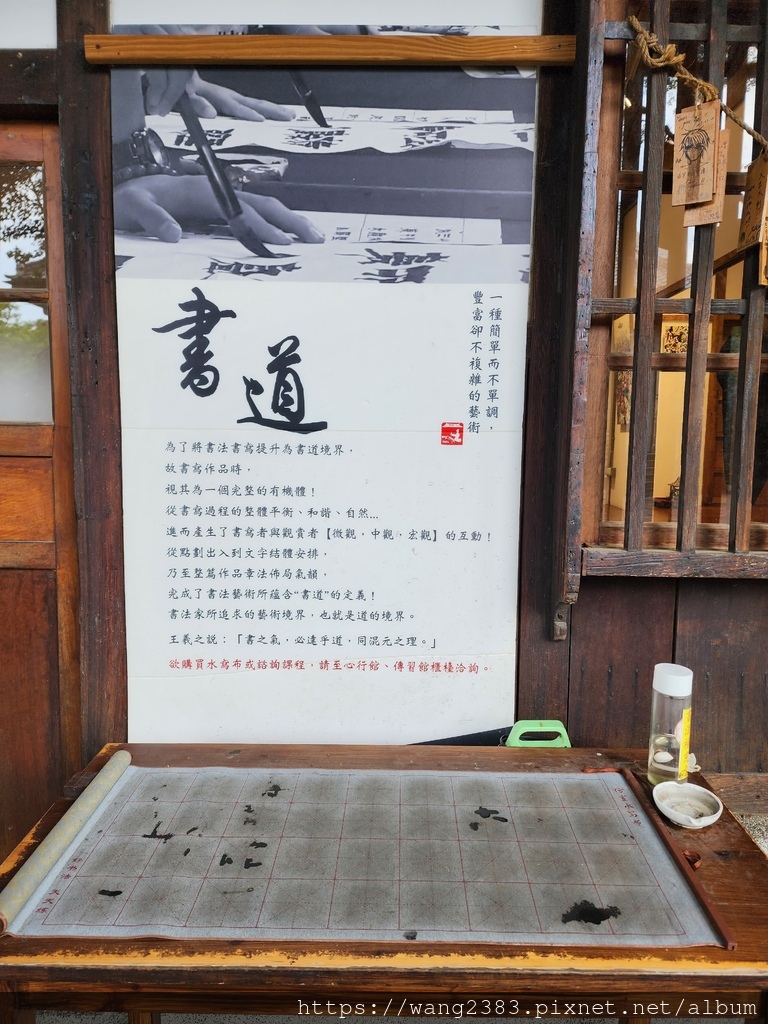 書道
一種簡單而不單調，
豐富卻不複雜的藝術
為了將書法書寫提升為書道境界，
故書寫作品時，
視其為一個完整的有機體！
從書寫過程的整體平衡、和諧、自然...
進而產生了書寫者與觀賞者【微觀，中觀，宏觀】的互動！
從點劃出入到文字結體安排，
乃至整篇作品章法佈局氣韻，
完成了書法藝術所蘊含“書道”的定義！
書法家所追求的藝術境界，也就是道的境界。
王羲之說：「書之氣，必達乎道，同混元之理。」
欲購買水寫布或諮詢課程，請至心行館、傳習館櫃檯洽詢。
天天練
https://wang2383.pixnet.net/album